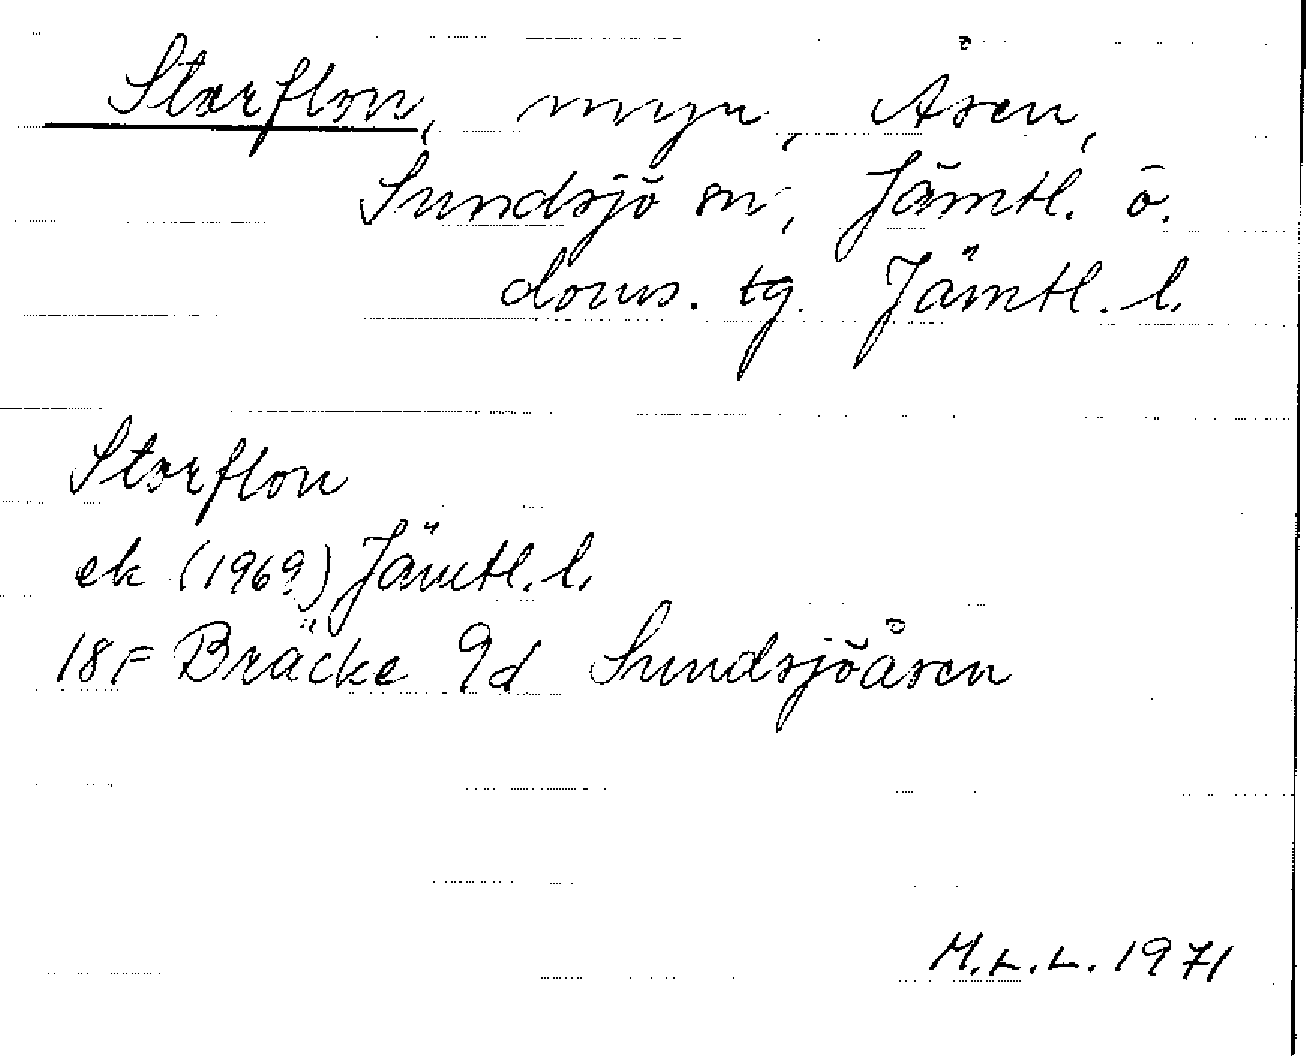 Storflon, myr, Åsen,
Sundsjö sn, Jämtl. ö.
doms. tg. Jämtl. l.
Storflon
ek (1969) Jämtl. l.
18F Bräcke 9d Sundsjöåsen
M.L.L. 1971